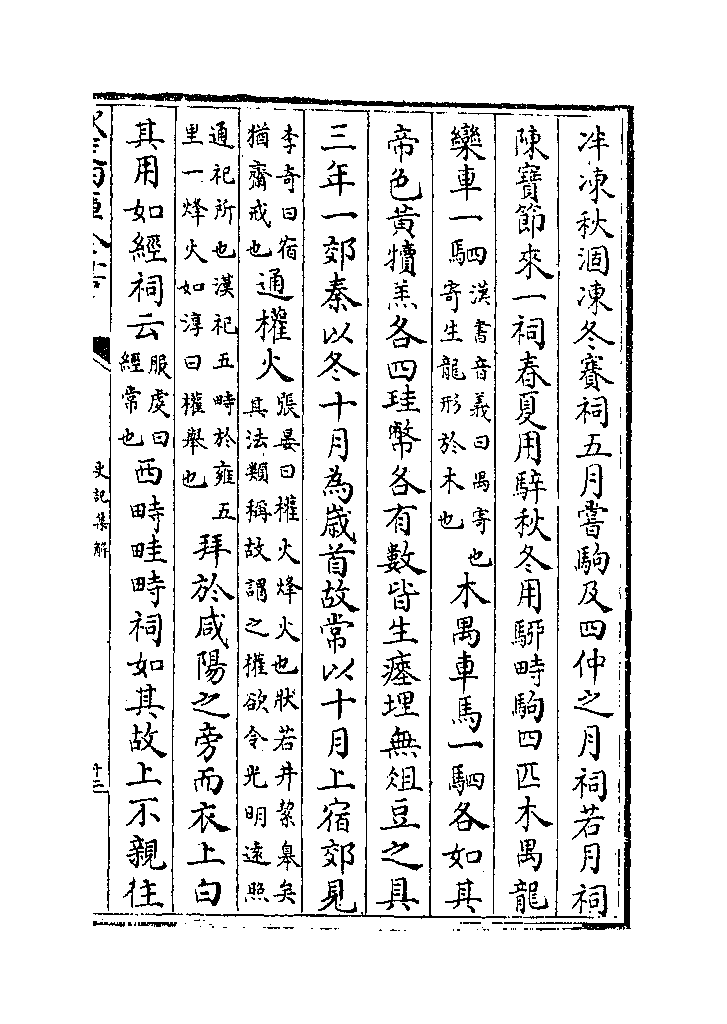 冸凍秋涸凍冬賽祠五月嘗駒及四仲之月祠若月祠
陳寶節來一祠春夏用騂秋冬用駵畤駒四匹木禺龍
欒車一駟漢書音義曰禺寄也寄生龍形於木也木禺車馬一駟各如其
帝色黄犢羔各四珪幣各有數皆生瘞埋無俎豆之具
三年一郊秦以冬十月為歲首故常以十月上宿郊見
李竒曰宿猶齋戒也通權火張晏曰權火烽火也狀若井挈臯矣其法類稱故謂之權欲令光明逺照
通祀所也漢祀五畤於雍五里一烽火如淳曰權舉也拜於咸陽之旁而衣上白
其用如經祠云服虔曰經常也西畤畦畤祠如其故上不親往
史記集解